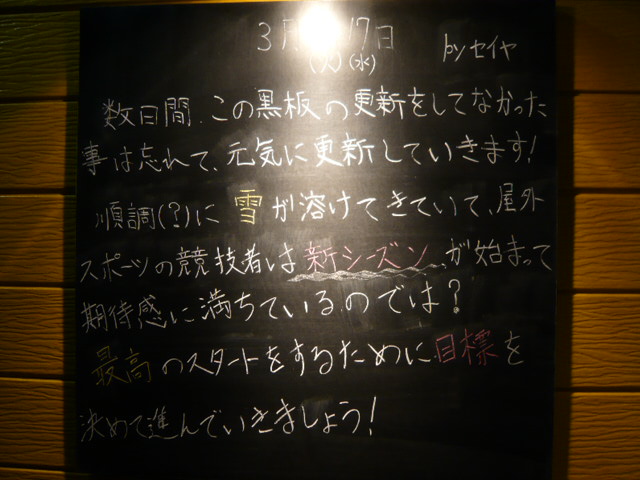 3月 17日
(水) byセイヤ
数日間、この黒板の更新をしてなかった
事は忘れて、元気に更新していきます!
順調(?)に雪が溶けてきていて、屋外
スポーツの競技者は新シーズンが始まって
期待感に満ちているのでは?
最高のスタートをするために目標を
決めて進んでいきましょう!